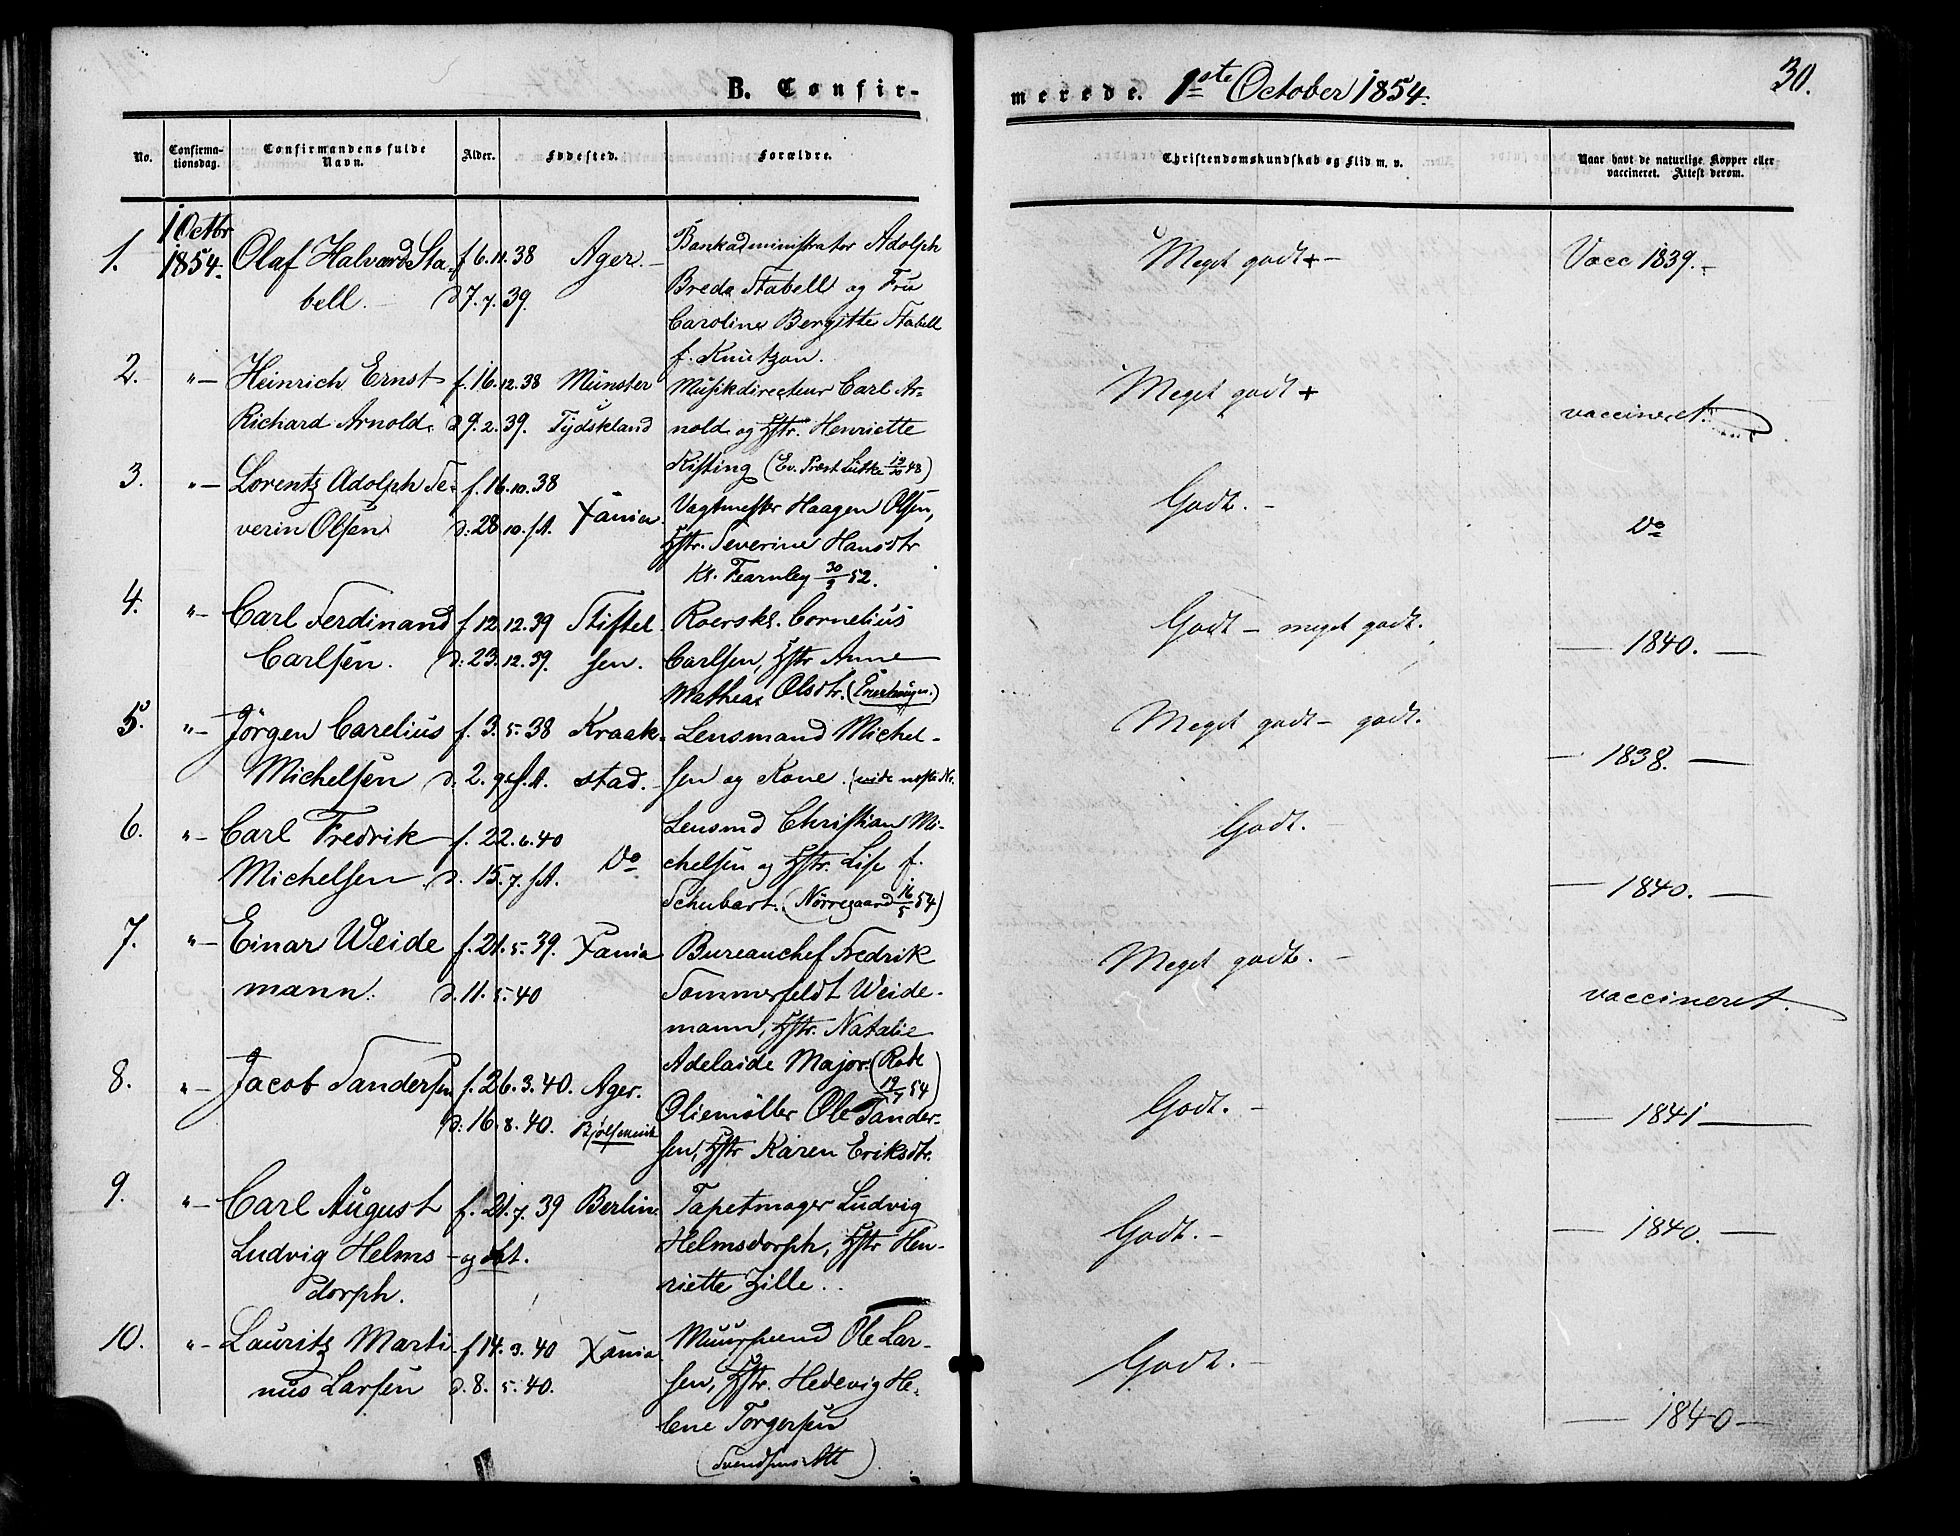 B. Confir-
merede. 1ste October 1854.
30.
No.
Confirma-
tionsdag.
Confirmandens fulde
Navn.
Alder.
Fødested.
Forældre.
Christendomskundskab og Flid m. v.
Naar havt de naturlige Kopper eller
vaccineret. Attest derom.
1.
1 Octbr
1854.
Olaf Halvard Sta-
bell.
f. 6. 11. 38
d. 7. 7. 39.
Ager.
Bankadministrator Adolph
Breda Stabell og Fru
Caroline Bergitte Stabell
f. Knutzon.
Meget godt +
Vacc 1839.
2.
"
Heinrich Ernst
Richard Arnold.
f. 16. 12. 38
d. 9. 2. 39.
Münster
Tydskland
Musikdirecteur Carl Ar-
nold og Hstr. Henriette
Kisting (Ev. Præst Lütke 19/10 48)
Meget godt +
vaccineret.
3.
"
Lorentz Adolph Se-
verin Olsen
f. 16. 10. 38
d. 28. 10. s.A.
Xania.
Vagtmester Haagen Olsen,
Hstr. Severine Hansdtr
Kl. Fearnley 30/9 52.
Godt.
Do
4.
"
Carl Ferdinand
Carlsen.
f. 12. 12. 39
d. 23. 12. 39.
Stiftel-
sen.
Roersk. Cornelius
Carlsen, Hstr Anne
Mathea Olsdtr. (Enerhaugen.)
Godt – meget godt.
— 1840. —
5.
"
Jörgen Carelius
Michelsen
f. 3. 5. 38
d. 2. 9. s.A.
Kraak-
stad.
Lensmand Michel-
sen og Kone. (vide næste No.
Meget godt – godt.
— 1838. —
6.
"
Carl Fredrik
Michelsen
f. 22. 6. 40
d. 15. 7. s.A.
Do
Lensmd Christian Mi-
chelsen og Hstr. Lise f.
Schubart. (Nörregaard 16/5 54)
Godt.
— 1840. —
7.
"
Einar Weide
mann.
f. 21. 5. 39.
d. 11. 5. 40
Xania
Bureauchef Fredrik
Sommerfeldt Weide-
mann, Hstr. Natalie
Adelaide Major. (Rode
54)
Meget godt.
vaccineret.
8.
"
Jacob Sandersen
f. 26. 3. 40.
d. 16. 8. 40.
Ager.
Bjölsenvik
Oliemöller Ole Sander-
sen, Hstr Karen Eriksdtr.
Godt.
— 1841 —
9.
"
Carl August
Ludvig Helms
dorph.
f. 21. 7. 39
– og dbt.
Berlin.
Tapetmager Ludvig
Helmsdorph, Hstr Hen-
riette Zille.
Godt.
— 1840. —
10.
"
Lauritz Marti-
nus Larsen
f. 14. 3. 40
d. 8. 5. 40.
Xania.
Muursvend Ole Lar-
sen, Hstr. Hedevig He-
lene Torgersen
(Svendsens Att)
Godt.
— 1840 —